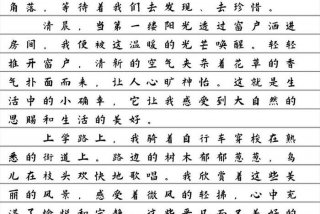 角落，等待着我们去发现、去珍惜。
清晨，当第一缕阳光透过窗户洒进
房间，我便被这温暖的光芒唤醒。轻轻
推开窗户，清新的空气夹杂着花草的香
气扑面而来，让人心旷神怡。这就是生
活中的小确幸，它让我感受到大自然的
恩赐和生活的美好。
上学路上，我骑着自行车穿梭在熟
悉的街道上。路边的树木郁郁葱葱，鸟
儿在枝头欢快地歌唱。我欣赏着这些美
丽的风景，感受着微风的轻拂，心中充
满了愉悦和宁静。